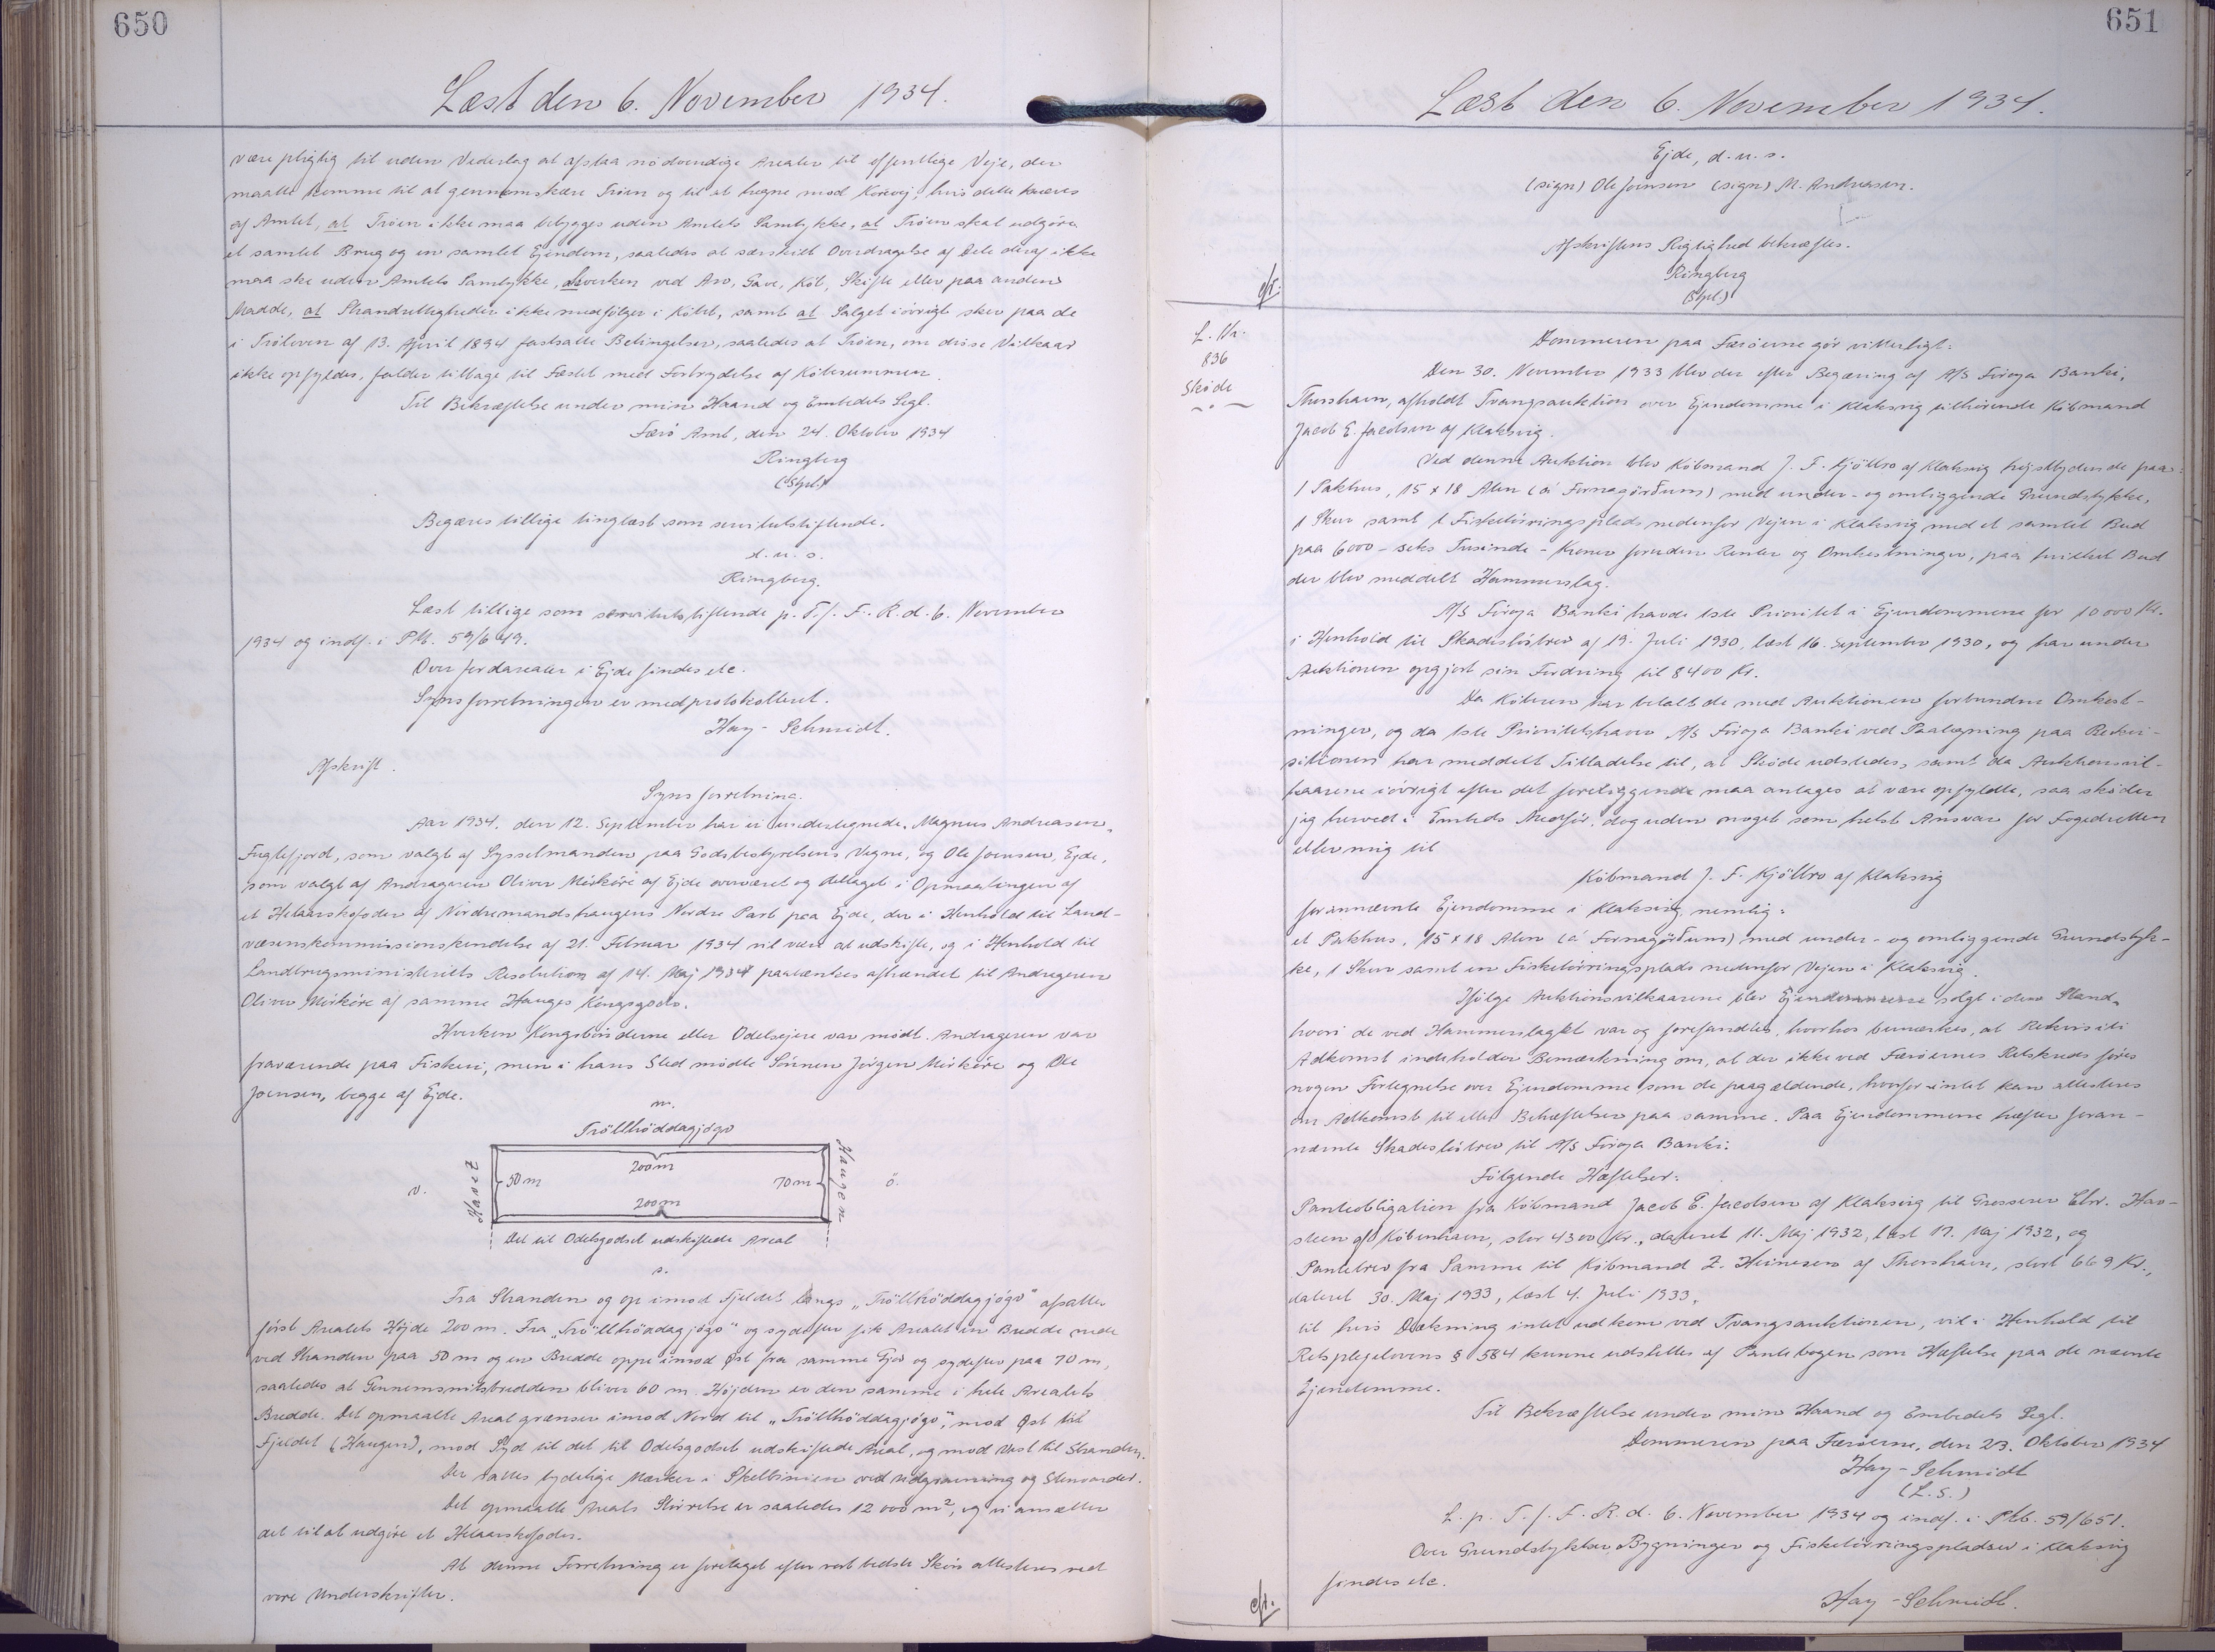 650
Læst den 6. November 1934.
være pligtig til uden Vederlag at afstaa nödvendige Arealer til offentlige Veje, der
maatte komme til at gennemskære Tröen og til at hegne mod Kørevej, hvis dette kræves
af Amtet, at Tröen ikke maa bebygges uden Amtets Samtykke, at Tröen skal udgöre
et samlet Brug og en samlet Ejendom, saaledes at særskilt Overdragelse af Dele deraf ikke
maa ske uden Amtets Samtykke, hverken ved Arv, Gave, Köb, Skifte eller paa anden
Maade, at Strandrettigheder ikke medfölger i Köbet, samt at Salget iövrigt sker paa de
i Tröloven af 13. April 1894 fastsatte Betingelser, saaledes at Tröen, om disse Vilkaar
ikke opfyldes, falder tilbage til Fæstet med Fortrydelse af Köbesummen.
Til Bekræftelse under min Haand og Embedets Segl.
Færö Amt, den 24. Oktober 1934
Ringberg
(Stpl.)
Begæres tillige tinglæst som servitutstiftende.
d. u. s.
Ringberg.
Læst tillige som servitutstiftende p. T. f. F. R. d. 6. November
1934 og indf. i Ptb. 59/649.
Over Jordarealer i Ejde findes ete.
Synsforretningen er medprotokolleret.
Hay-Schmidt.
Afskrift.
Synsforretning.
Aar 1934, den 12. September har vi undertegnede, Magnus Andreasen,
Fuglefjord, som valgt af Sysselmanden paa Godsbestyrelsens Vegne, og Ole Joensen, Ejde,
som valgt af Andrageren Oliver Mörköre af Ejde overværet og deltaget i Opmaalingen af
et Helaarskofoder af Nordremandshaugens Nordre Part paa Ejde, der i Henhold til Land-
væsenskommissionskendelse af 21. Februar 1934 vil være at udskifte, og i Henhold til
Landbrugsministeriets Resolution af 14. Maj 1934 paatænkes afhændet til Andrageren
Oliver Mörköre af samme Hauges Kongsgods.
Hverken Kongsbönderne eller Odelsejere var mödt. Andrageren var
fraværende paa Fiskeri, men i hans Sted mödte Sönnen Jörgen Mörköre og Ole
Joensen, begge af Ejde.
n.
Tröllhöddagjógv
200 m
v. Havet 50 m 70 m Haugen ö.
200 m
Det til Odelsgodset udskiftede Areal
s.
Fra Stranden og op imod Fjeldet langs „Tröllhöddagjógv" afsattes
först Arealets Höjde 200 m. Fra „Tröllhöddagjógv" og sydefter fik Arealet en Bredde nede
ved Stranden paa 50 m og en Bredde oppe imod Øst fra samme Gjov og sydefter paa 70 m,
saaledes at Gennemsnitsbredden bliver 60 m. Höjden er den samme i hele Arealets
Bredde. Det opmaalte Areal grænser imod Nord til „Tröllhöddagjógv", mod Øst til
Fjeldet (Haugen), mod Syd til det til Odelsgodset udskiftede Areal, og mod Vest til Stranden.
Der sattes tydelige Mærker i Skellinien ved Udgravning og Stenvarder.
Det opmaalte Areals Störrelse er saaledes 12 000 m², og vi ansætter
det til at udgöre et Helaarskofoder.
At denne Forretning er foretaget efter vort bedste Skön attesteres ved
vore Underskrifter.
651
Læst den 6. November 1934.
Ejde, d. u. s.
(sign) Ole Joensen (sign) M. Andreasen.
Afskriftens Rigtighed bekræftes.
Ringberg
(Stpl.)
cfr.
L. Nr.
836
Sköde
Dommeren paa Færöerne gör vitterligt:
Den 30. November 1933 blev der efter Begæring af A/S Föroya Banki,
Thorshavn, afholdt Tvangsauktion over Ejendomme i Klaksvig tilhörende Köbmand
Jacob E. Jacobsen af Klaksvig.
Ved denne Auktion blev Köbmand J. F. Kjölbro af Klaksvig höjstbydende paa:
1 Pakhus, 15 x 18 Alen (á Fornagörðum) med under- og omliggende Grundstykke,
1 Skur samt 1 Fisketörringsplads nedenfor Vejen i Klaksvig med et samlet Bud
paa 6000 - seks Tusinde - Kroner foruden Renter og Omkostninger, paa hvilket Bud
der blev meddelt Hammerslag.
A/S Föroya Banki havde 1ste Prioritet i Ejendommene for 10 000 Kr.
i Henhold til Skadeslösbrev af 19. Juli 1930, læst 16. September 1930, og har under
Auktionen opgjort sin Fordring til 8400 Kr.
Da Köberen har betalt de med Auktionen forbundne Omkost-
ninger, og da 1ste Prioritetshaver A/S Föroya Banki ved Paategning paa Rekvi-
sitionen har meddelt Tilladelse til, at Sköde udstedes, samt da Auktionsvil-
kaarene iövrigt efter det foreliggende maa antages at være opfyldte, saa sköder
jeg herved i Embeds Medför, dog uden noget som helst Ansvar for Fogedretten
eller mig til
Köbmand J. F. Kjölbro af Klaksvig
forannævnte Ejendomme i Klaksvig, nemlig:
et Pakhus, 15 x 18 Alen (á Fornagörðum) med under- og omliggende Grundstyk-
ke, 1 Skur samt en Fisketörringsplads nedenfor Vejen i Klaksvig.
Ifölge Auktionsvilkaarene blev Ejendommene solgt i den Stand,
hvori de ved Hammerslaget var og forefandtes, hvorhos bemærkes, at Rekvisiti
Adkomst indeholder Bemærkning om, at der ikke ved Færöernes Retskreds föres
nogen Fortegnelse over Ejendomme som de paagældende, hvorfor intet kan attesteres
om Adkomst til eller Behæftelser paa samme. Paa Ejendommene hæfter foran-
nævnte Skadeslösbrev til A/S Föroya Banki.
Fölgende Hæftelser:
Panteobligation fra Köbmand Jacob E. Jacobsen af Klaksvig til Grosserer Chr. Hav-
steen af Köbenhavn, stor 4300 Kr., dateret 11. Maj 1932, læst 17. Maj 1932, og
Pantebrev fra Samme til Köbmand Z. Heinesen af Thorshavn, stort 669 Kr.,
dateret 30. Maj 1933, læst 4. Juli 1933,
til hvis Dækning intet udkom ved Tvangsauktionen, vil i Henhold til
Retsplejelovens § 584 kunne udslettes af Pantebogen som Hæftelse paa de nævnte
Ejendomme.
Til Bekræftelse under min Haand og Embedets Segl.
Dommeren paa Færöerne, den 23. Oktober 1934
Hay-Schmidt
(L.S.)
L. p. T. f. F. R. d. 6. November 1934 og indf. i Ptb. 59/651.
Over Grundstykker, Bygninger og Fisketörringspladser i Klaksvig
findes ete.
Hay-Schmidt.
cfr.